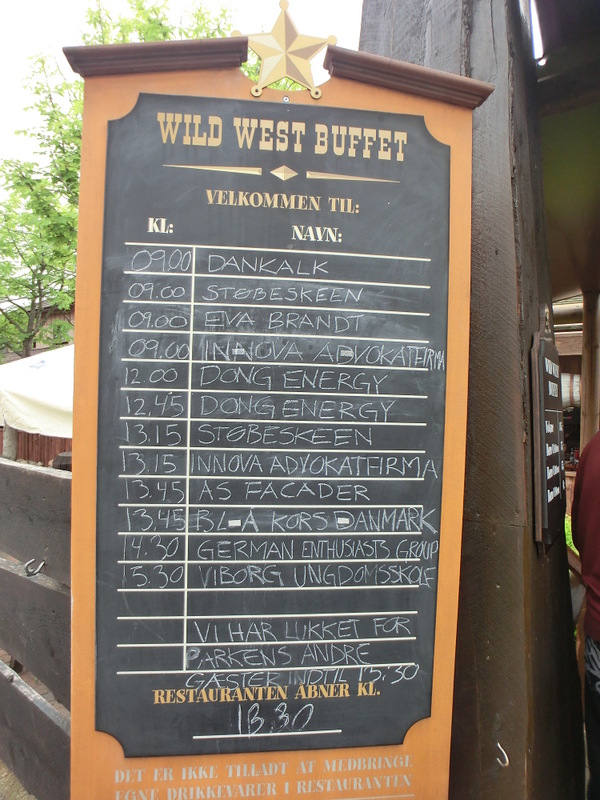 WILD WEST BUFFET
VELKOMMEN TIL:
KL: NAVN:
09.00 DANKALK
09.00 STØBESKEEN
09.00 EVA BRANDT
09.00 INNOVA ADVOKATFIRMA
12.00 DONG ENERGY
12.45 DONG ENERGY
13.15 STØBESKEEN
13.15 INNOVA ADVOKATFIRMA
13.45 AS FACADER
13.45 BLÅ KORS DANMARK
14.30 GERMAN ENTHUSIASTS GROUP
15.30 VIBORG UNGDOMSSKOLE
VI HAR LUKKET FOR
PARKENS ANDRE
GÆSTER INDTIL 13.30
RESTAURANTEN ÅBNER KL.
13.30
DET ER IKKE TILLADT AT MEDBRINGE
EGNE DRIKKEVARER I RESTAURANTEN